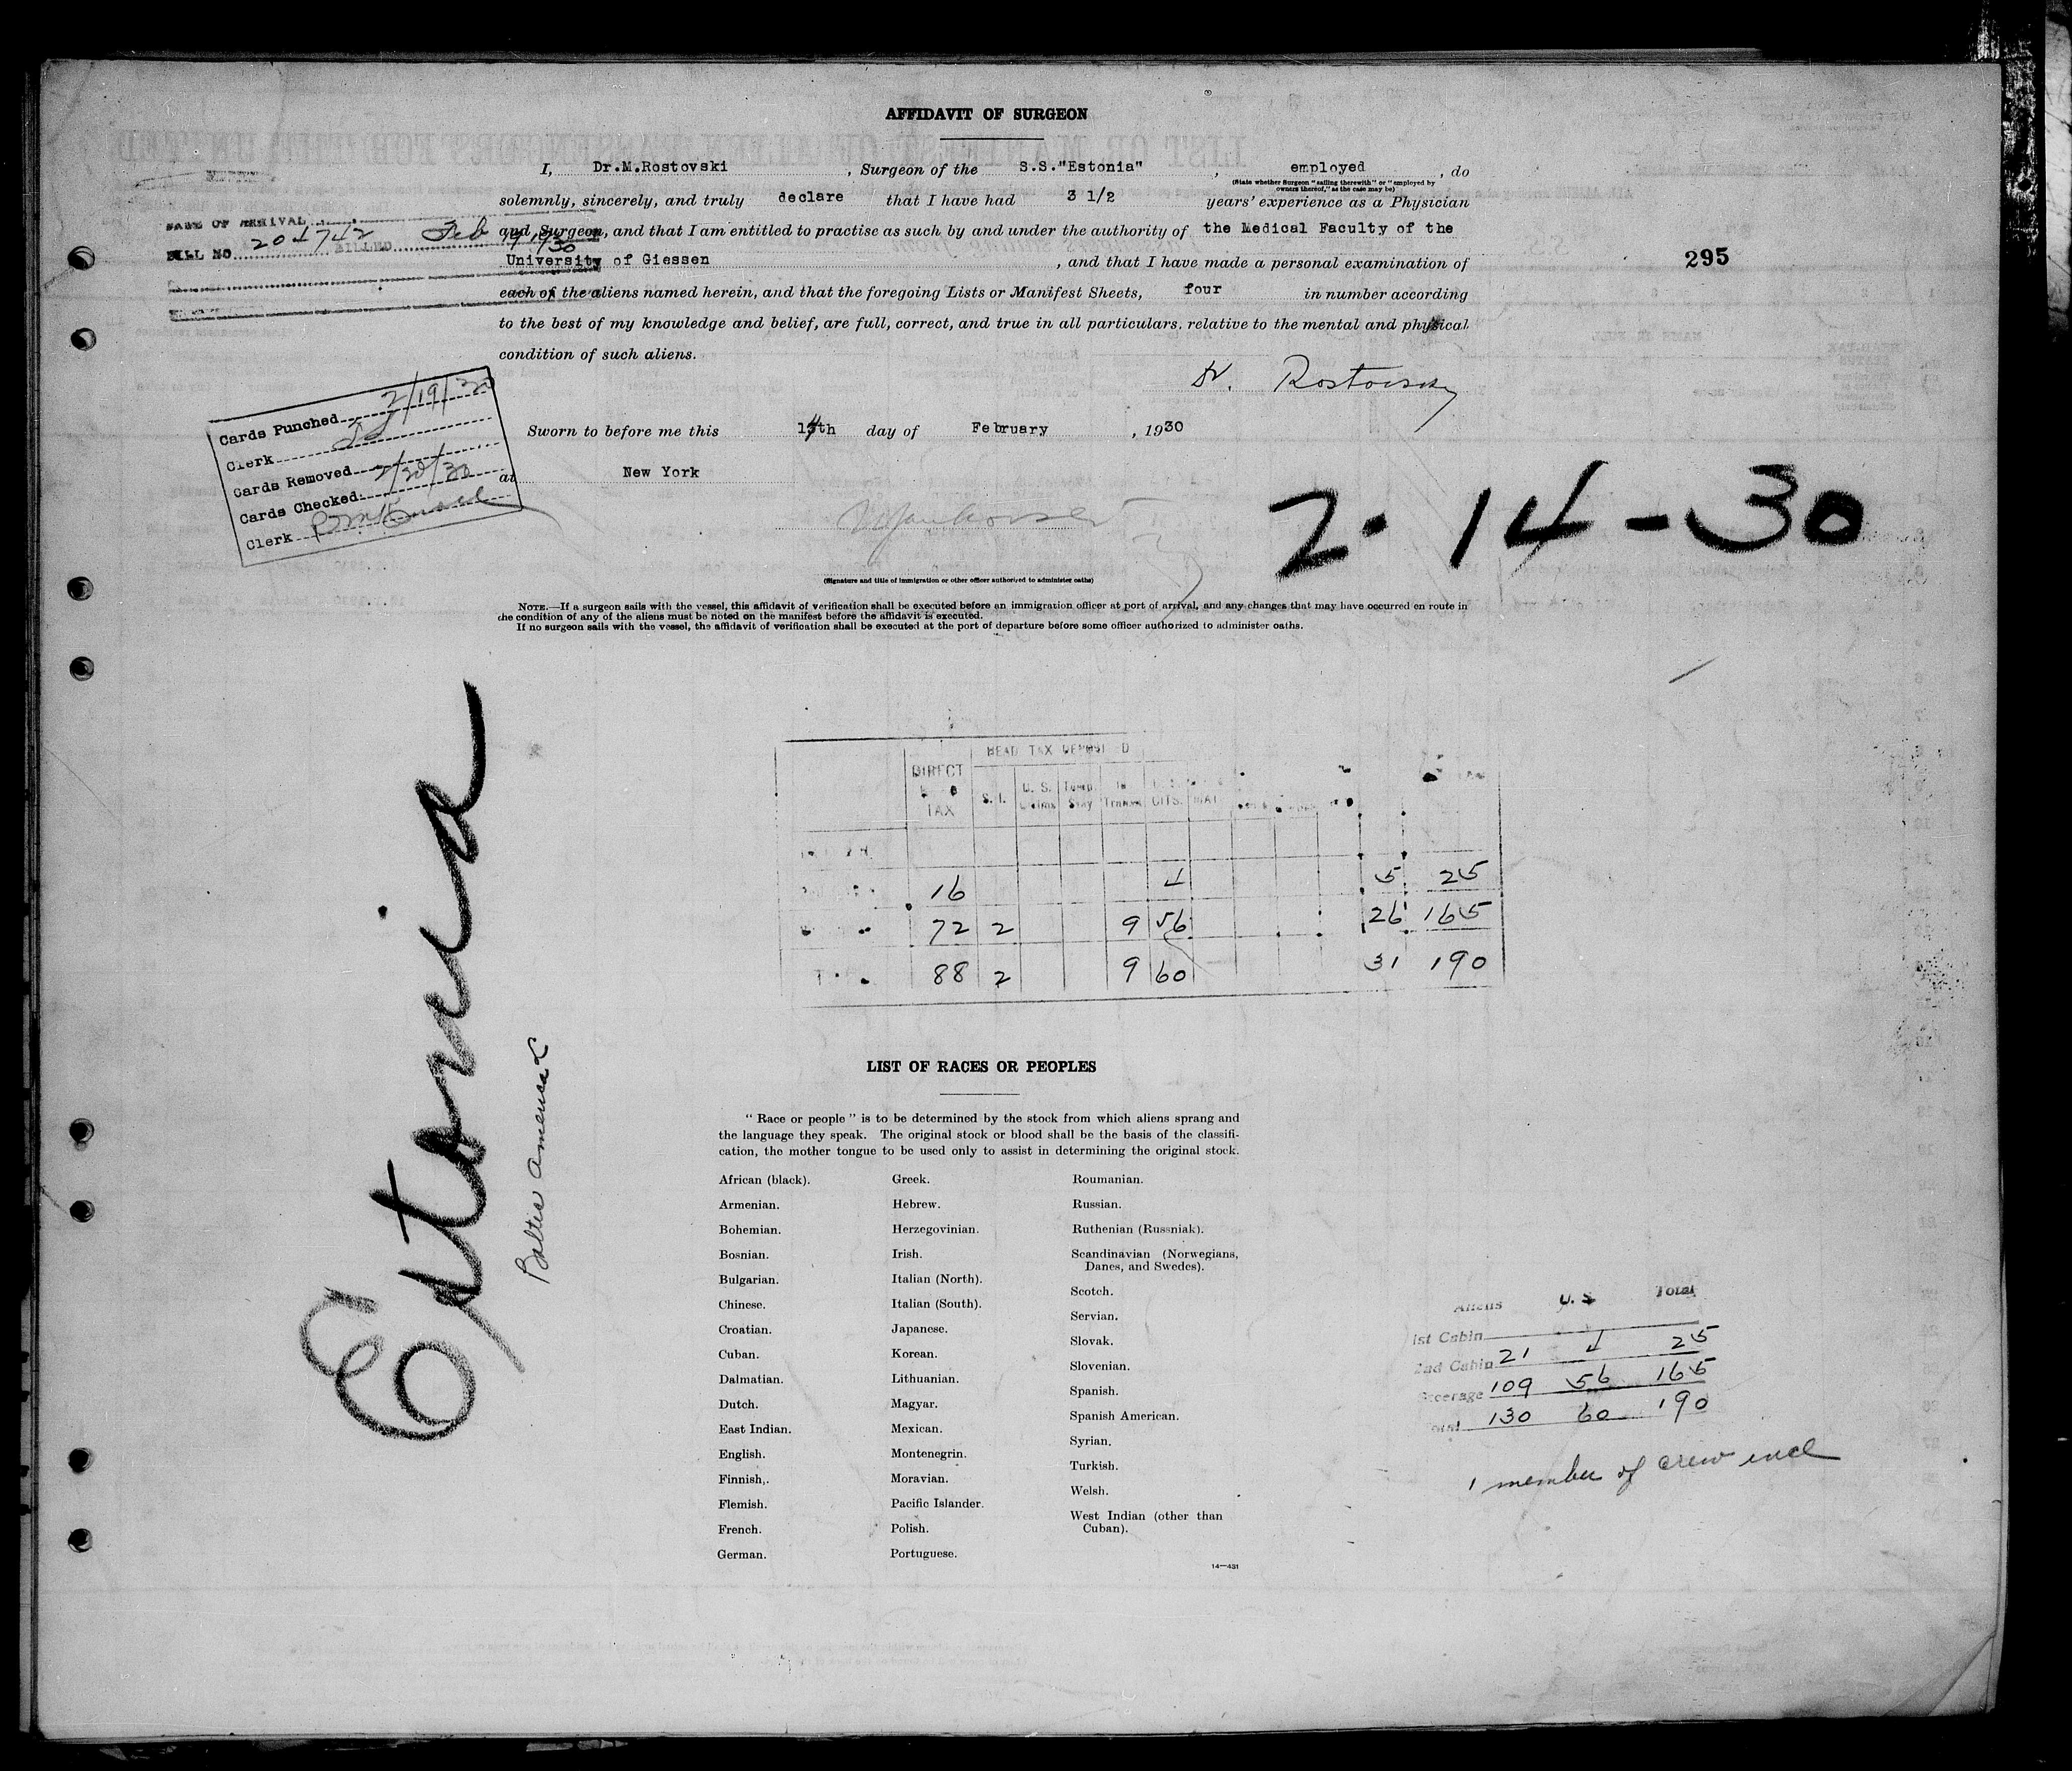 AFFIDAVIT OF SURGEON
I, Dr.M.Rostovski, Surgeon of the S.S."Estonia", employed, do
(State whether Surgeon "sailing therewith" or "employed by
owners thereof," as the case may be)
solemnly, sincerely, and truly declare that I have had 3 1/2 years' experience as a Physician
and Surgeon, and that I am entitled to practise as such by and under the authority of the Medical Faculty of the
University of Giessen, and that I have made a personal examination of
each of the aliens named herein, and that the foregoing Lists or Manifest Sheets, four in number according
to the best of my knowledge and belief, are full, correct, and true in all particulars, relative to the mental and physical
condition of such aliens.
Dr. Rostovsky
Sworn to before me this 14th day of February, 1930
at New York
(Signature and title of immigration or other officer authorized to administer oaths)
NOTE.—If a surgeon sails with the vessel, this affidavit of verification shall be executed before an immigration officer at port of arrival, and any changes that may have occurred en route in
the condition of any of the aliens must be noted on the manifest before the affidavit is executed.
If no surgeon sails with the vessel, the affidavit of verification shall be executed at the port of departure before some officer authorized to administer oaths.
DATE OF ARRIVAL
BILL NO 204742 BILLED Feb 19 1930
295
Cards Punched 2/19/30
Clerk
Cards Removed
Cards Checked 2/20/30
Clerk
2-14-30
Estonia
Baltic America L
HEAD TAX DEPOSITED
DIRECT HEAD TAX S. I. U. S. Claims Temp. Stay In Transit U. S. CITS.
16 4 5 25
72 2 9 56 26 165
88 2 9 60 31 190
LIST OF RACES OR PEOPLES
"Race or people" is to be determined by the stock from which aliens sprang and
the language they speak. The original stock or blood shall be the basis of the classifi-
cation, the mother tongue to be used only to assist in determining the original stock.
African (black).
Armenian.
Bohemian.
Bosnian.
Bulgarian.
Chinese.
Croatian.
Cuban.
Dalmatian.
Dutch.
East Indian.
English.
Finnish.
Flemish.
French.
German.
Greek.
Hebrew.
Herzegovinian.
Irish.
Italian (North).
Italian (South).
Japanese.
Korean.
Lithuanian.
Magyar.
Mexican.
Montenegrin.
Moravian.
Pacific Islander.
Polish.
Portuguese.
Roumanian.
Russian.
Ruthenian (Russniak).
Scandinavian (Norwegians,
Danes, and Swedes).
Scotch.
Servian.
Slovak.
Slovenian.
Spanish.
Spanish American.
Syrian.
Turkish.
Welsh.
West Indian (other than
Cuban).
14—431
Aliens U. S Total
1st Cabin
2nd Cabin 21 4 25
Steerage 109 56 165
Total 130 60 190
1 member of crew incl